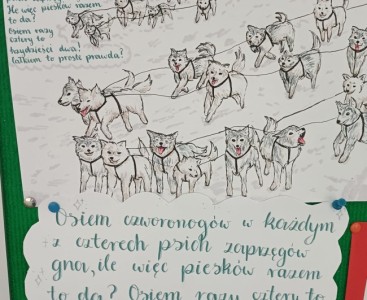 Ile więc piesków razem
to da?
Osiem razy
cztery to
trzydzieści dwa!
Całkiem to proste prawda?
Osiem czworonogów w każdym
z czterech psich zaprzęgów
gna, ile więc piesków razem
to da? Osiem razy cztery to